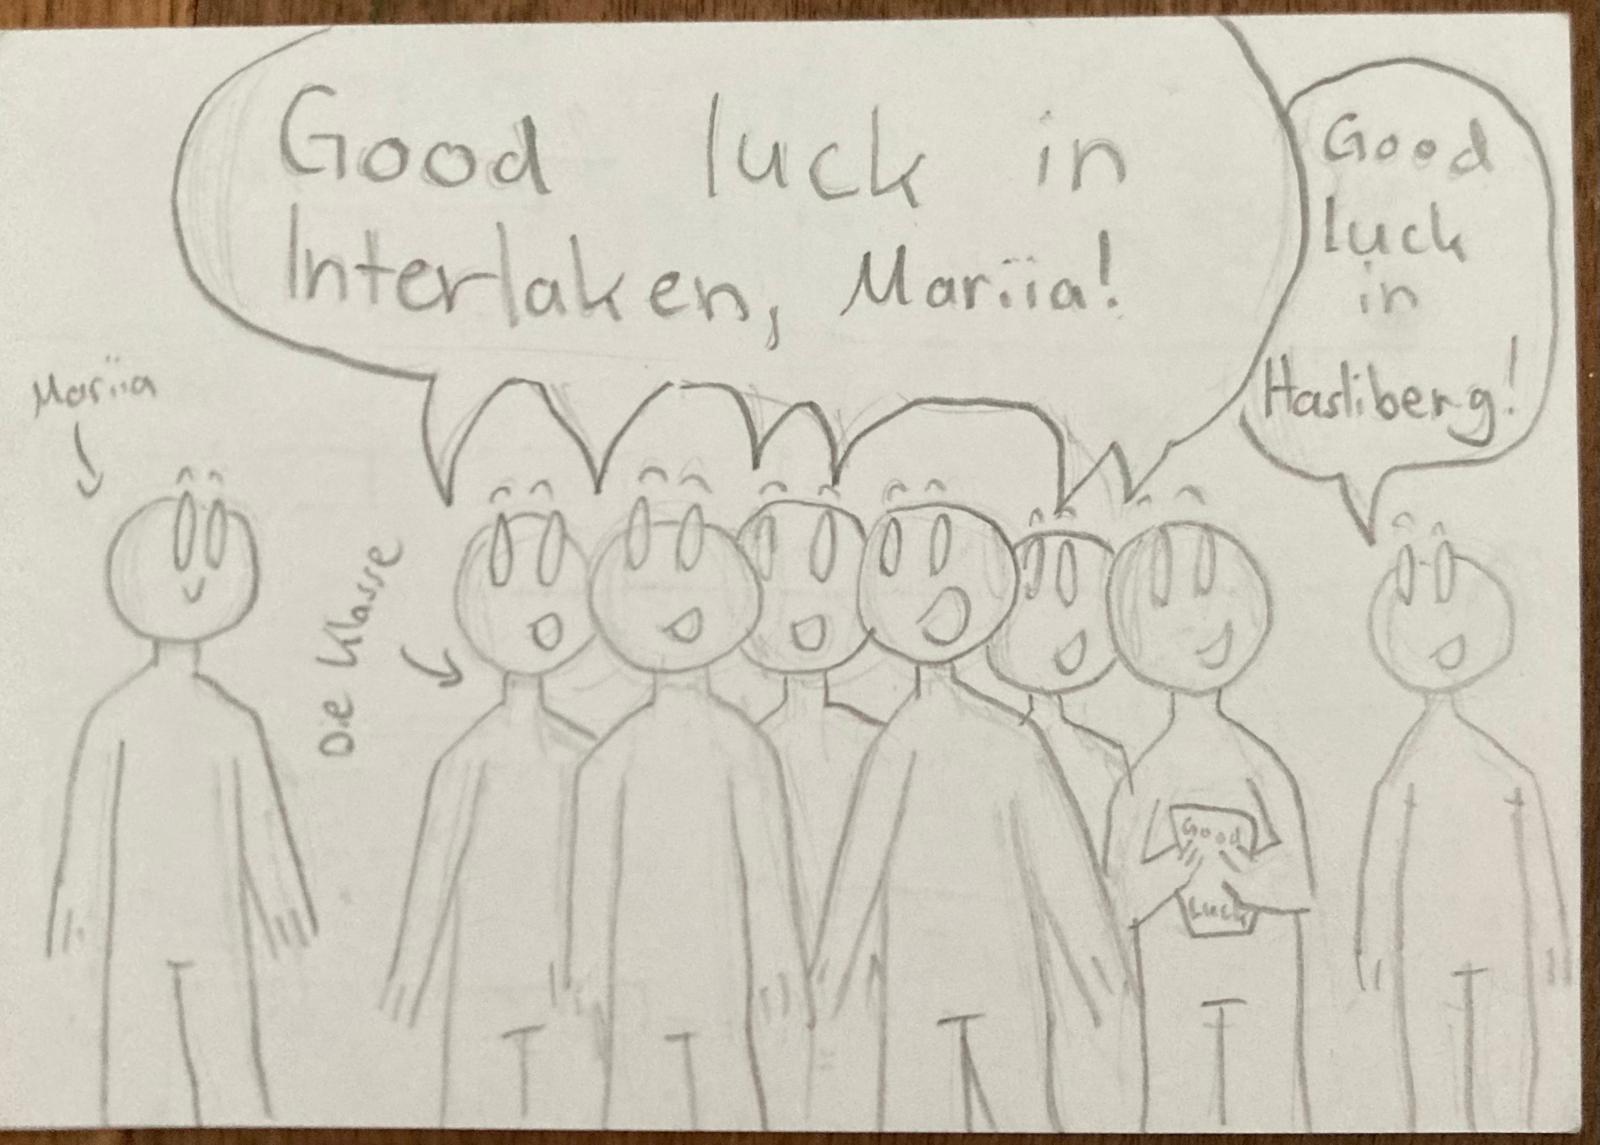 Good luck in
Interlaken, Mariia!
Good
luck
in
Hasliberg!
Mariia
Die Klasse
Good
Luck